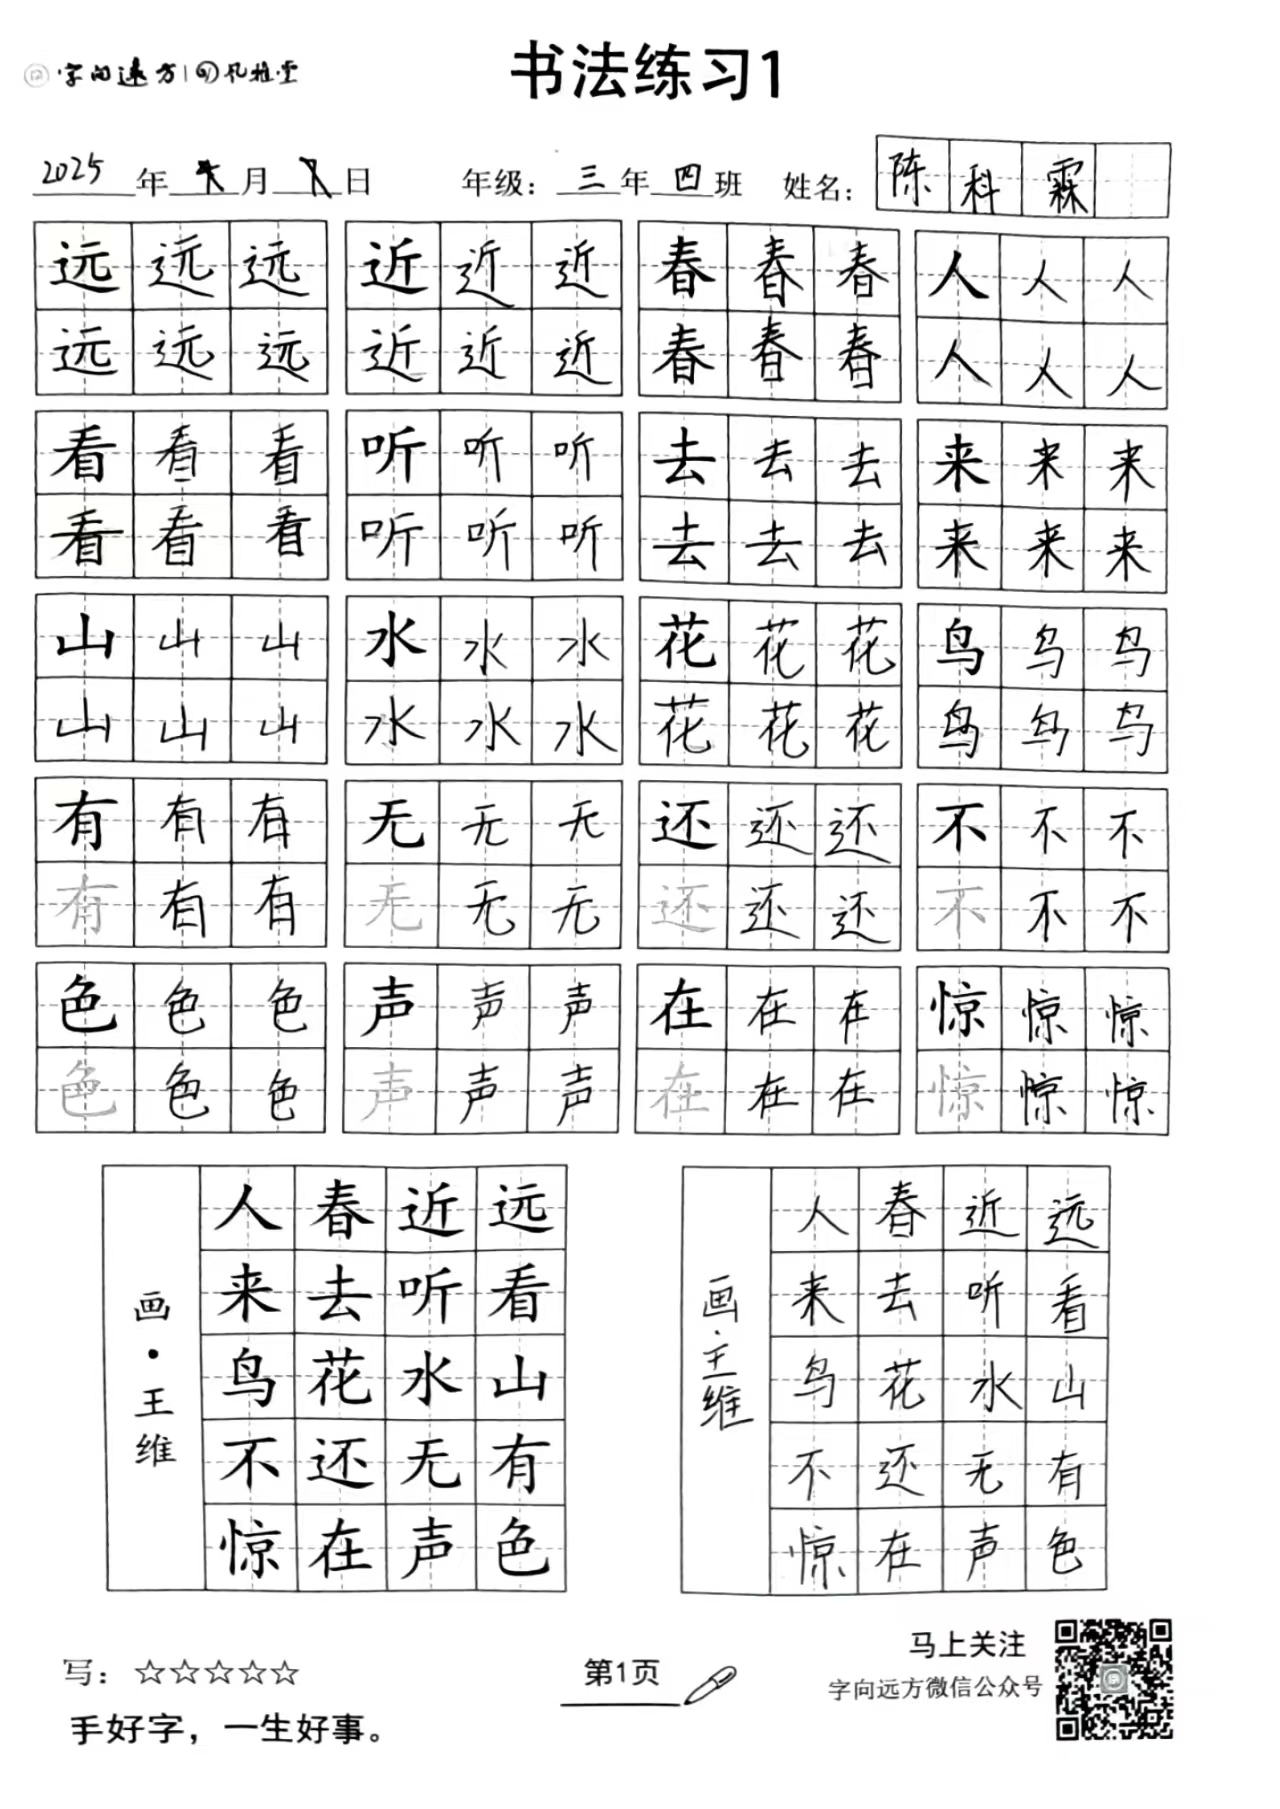 字向远方 风雅堂
书法练习1
2025年 月 日 年级：三年四班 姓名：陈科霖
远远远 近近近 春春春 人人人
远远远 近近近 春春春 人人人
看看看 听听听 去去去 来来来
看看看 听听听 去去去 来来来
山山山 水水水 花花花 鸟鸟鸟
山山山 水水水 花花花 鸟鸟鸟
有有有 无无无 还还还 不不不
有有有 无无无 还还还 不不不
色色色 声声声 在在在 惊惊惊
色色色 声声声 在在在 惊惊惊
远看山有色
近听水无声
春去花还在
人来鸟不惊
画·王维
远看山有色
近听水无声
春去花还在
人来鸟不惊
画·王维
写：☆☆☆☆☆
手好字，一生好事。
第1页
马上关注
字向远方微信公众号